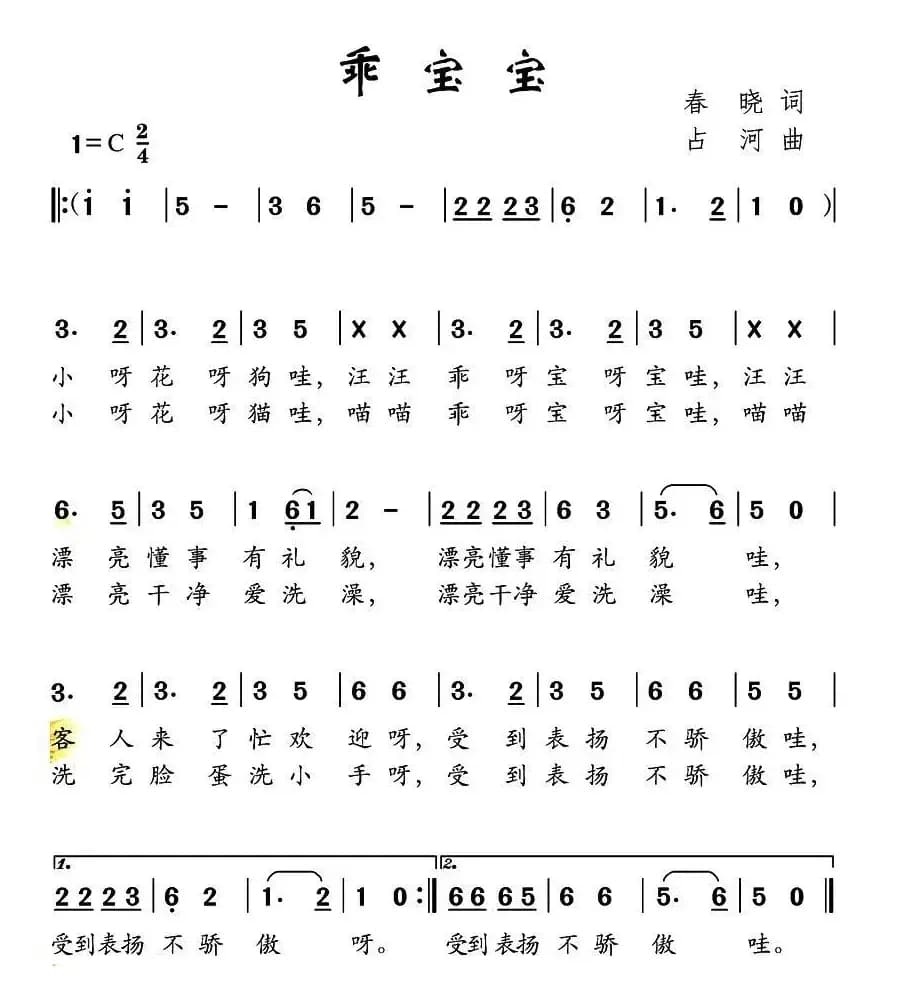 乖宝宝
春晓词
1=C 2/4
占河曲
‖:(i̇ i̇ | 5 - | 3 6 | 5 - | 2 2 2 3 | 6̣ 2 | 1. 2 | 1 0 )|
3. 2 | 3. 2 | 3 5 | X X | 3. 2 | 3. 2 | 3 5 | X X |
小呀花呀狗哇,汪汪 乖呀宝呀宝哇,汪汪
小呀花呀猫哇,喵喵 乖呀宝呀宝哇,喵喵
6. 5 | 3 5 | 1 6̣1 | 2 - | 2 2 2 3 | 6 3 | 5. 6 | 5 0 |
漂亮懂事有礼貌, 漂亮懂事有礼貌哇,
漂亮干净爱洗澡, 漂亮干净爱洗澡哇,
3. 2 | 3. 2 | 3 5 | 6 6 | 3. 2 | 3 5 | 6 6 | 5 5 |
客人来了忙欢迎呀,受到表扬不骄傲哇,
洗完脸蛋洗小手呀,受到表扬不骄傲哇,
1. 2.
2 2 2 3 | 6̣ 2 | 1. 2 | 1 0 :‖ 6 6 6 5 | 6 6 | 5. 6 | 5 0 ‖
受到表扬不骄傲呀。 受到表扬不骄傲哇。